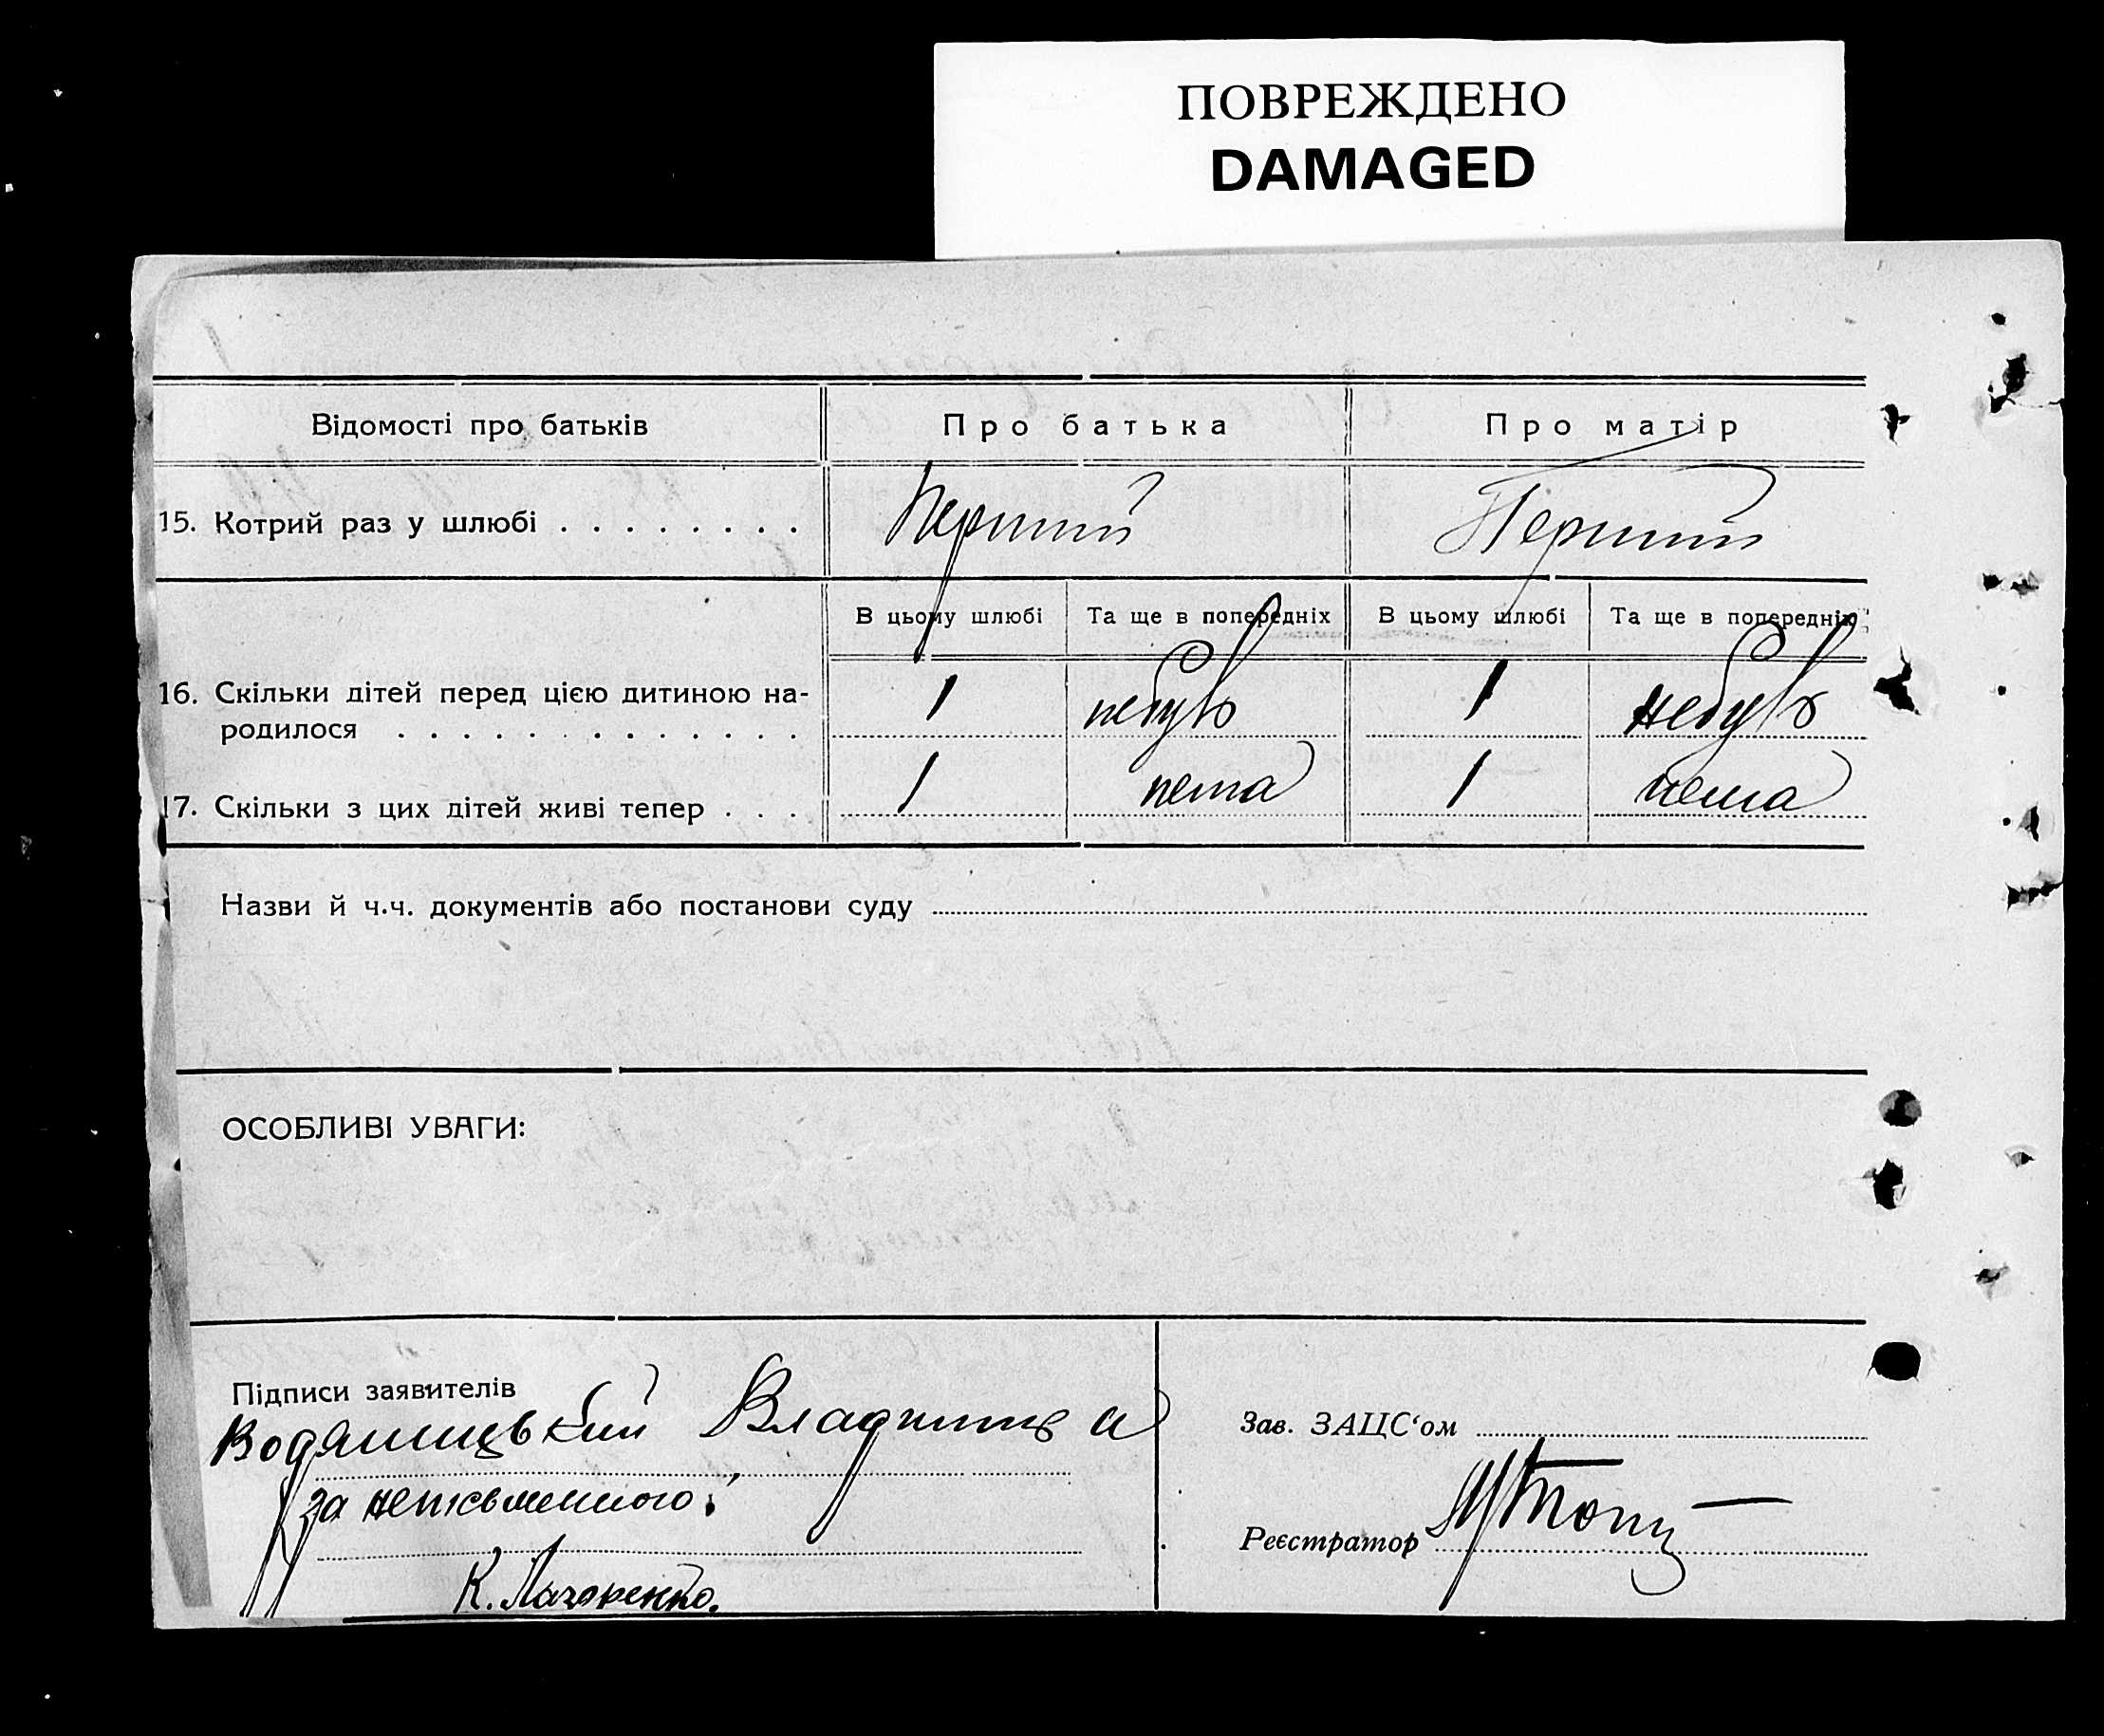 ПОВРЕЖДЕНО
DAMAGED
Відомості про батьків Про батька Про матір
15. Котрий раз у шлюбі Перший Перший
В цьому шлюбі Та ще в попередніх В цьому шлюбі Та ще в попередніх
16. Скільки дітей перед цією дитиною на-
родилося 1 небув 1 небув
17. Скільки з цих дітей живі тепер 1 нема 1 нема
Назви й ч.ч. документів або постанови суду
ОСОБЛИВІ УВАГИ:
Підписи заявителів
Водяницький
за неписьменного:
К. Лазаренко.
Зав. ЗАЦС'ом
Реєстратор